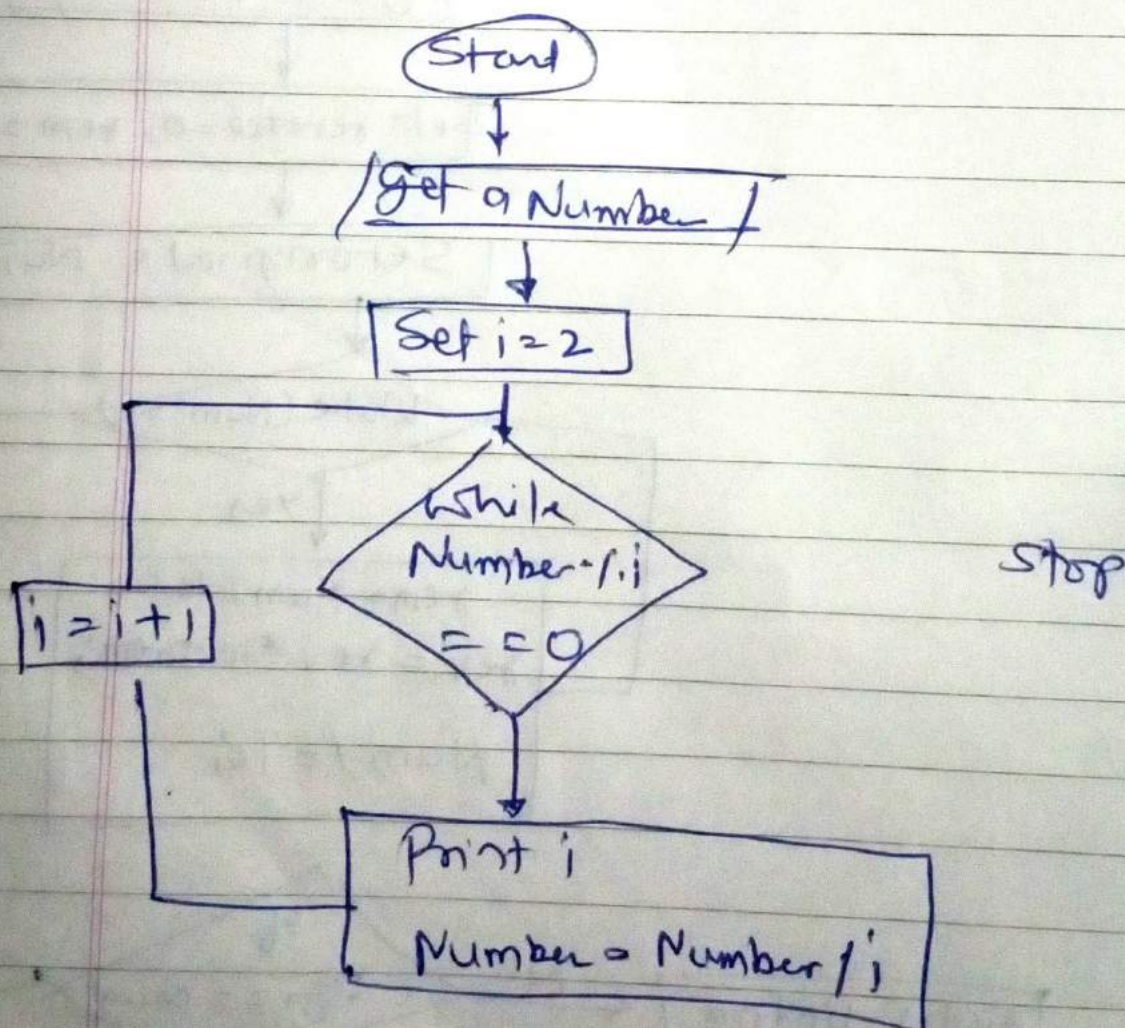 Start
Get a Number
Set i = 2
While
Number % i
= = 0
Stop
i = i + 1
Print i
Number = Number / i